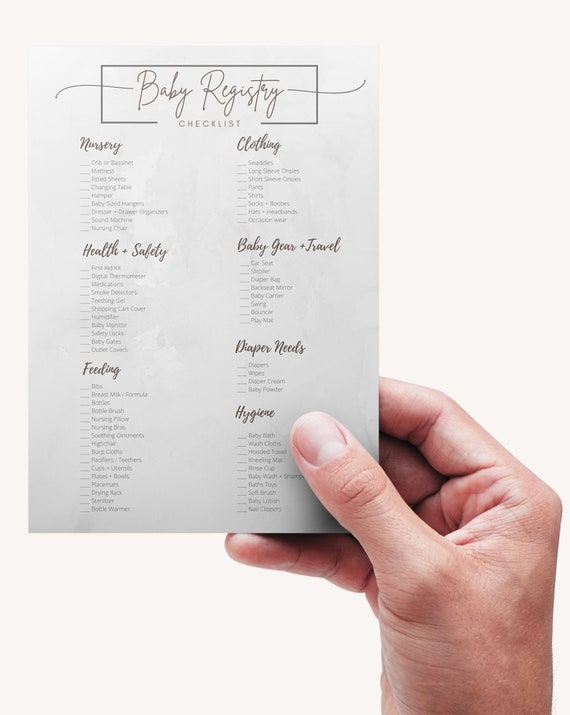 Baby Registry
CHECKLIST
Nursery
___ Crib or Bassinet
___ Mattress
___ Fitted Sheets
___ Changing Table
___ Hamper
___ Baby Sized Hangers
___ Dresser + Drawer Organizers
___ Sound Machine
___ Nursing Chair
Health + Safety
___ First Aid Kit
___ Digital Thermometer
___ Medications
___ Smoke Detectors
___ Teething Gel
___ Shopping Cart Cover
___ Humidifier
___ Baby Monitor
___ Safety Locks
___ Baby Gates
___ Outlet Covers
Feeding
___ Bibs
___ Breast Milk / Formula
___ Bottles
___ Bottle Brush
___ Nursing Pillow
___ Nursing Bras
___ Soothing Ointments
___ Highchair
___ Burp Cloths
___ Pacifiers / Teethers
___ Cups + Utensils
___ Plates + Bowls
___ Placemats
___ Drying Rack
___ Sterilizer
___ Bottle Warmer
Clothing
___ Swaddles
___ Long Sleeve Onsies
___ Short Sleeve Onsies
___ Pants
___ Shirts
___ Socks + Booties
___ Hats + Headbands
___ Occasion wear
Baby Gear +Travel
___ Car Seat
___ Stroller
___ Diaper Bag
___ Backseat Mirror
___ Baby Carrier
___ Swing
___ Bouncer
___ Play Mat
Diaper Needs
___ Diapers
___ Wipes
___ Diaper Cream
___ Baby Powder
Hygiene
___ Baby Bath
___ Wash Cloths
___ Hooded Towel
___ Kneeling Mat
___ Rinse Cup
___ Baby Wash + Shamp
___ Baths Toys
___ Soft Brush
___ Baby Lotion
___ Nail Clippers